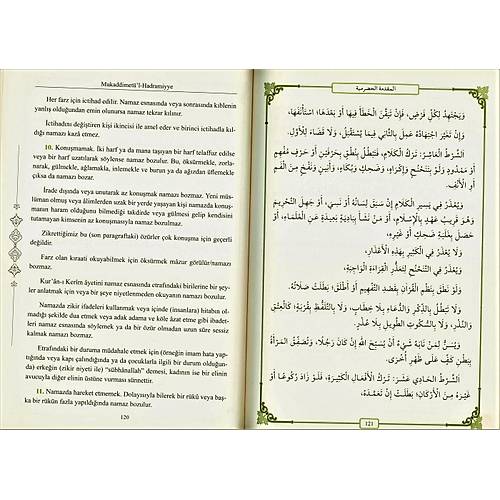 Mukaddimetü'l-Hadramiyye
Her farz için ictihad edilir. Namaz esnasında veya sonrasında kıblenin
yanlış olduğundan emin olunursa namaz tekrar kılınır.
İctihadını değiştiren kişi ikincisi ile amel eder ve birinci ictihadla kıl-
dığı namazı kaza etmez.
10. Konuşmamak. İki harf ya da mana taşıyan bir harf telaffuz edilse
veya bir harf uzatılarak söylense namaz bozulur. Bu, öksürmekle, zorla-
narak, gülmekle, ağlamakla, inlemekle ve burun ya da ağızdan üflemekle
çıksa da namazı bozar.
İrade dışında veya unutarak az konuşmak namazı bozmaz. Yeni müs-
lüman olmuş veya âlimlerden uzak bir yerde yaşayan kişi namazda konuş-
manın haram olduğunu bilmediği takdirde veya gülmesi gelip kendisini
tutamayan kimsenin az konuşmasıyla da namaz bozulmaz.
Zikrettiğimiz bu (son paragraftaki) özürler çok konuşma için geçerli
değildir.
Farz olan kıraati okuyabilmek için öksürmek mâzur görülür/namazı
bozmaz.
Kur'ân-ı Kerîm âyetini namaz esnasında etrafındaki birilerine bir şey-
ler anlatmak için veya bir şeye niyetlenmeden okuyanın namazı bozulur.
Namazda zikir ifadeleri kullanmak veya içinde (insanlara) hitabın ol-
madığı şekilde dua etmek veya adak adama ve köle âzat etme gibi ibadet-
leri namaz esnasında söylemek ya da bir özür olmadan uzun süre sessiz
kalmak namazı bozmaz.
Etrafındaki bir duruma müdahale etmek için (örneğin imam hata yap-
tığında veya kapı çalındığında ya da çocuklarla ilgili bir durum olduğun-
da) erkeğin (zikir niyeti ile) "sübhânallah" demesi, kadının ise bir elinin
avucuyla diğer elinin üstüne vurması sünnettir.
11. Namazda hareket etmemek. Dolayısıyla bilerek bir rükû veya baş-
ka bir rükün fazla yapıldığında namaz bozulur.
120
المقدمة الحضرمية
وَيَجْتَهِدُ لِكُلِّ فَرْضٍ، فَإِنْ تَيَقَّنَ الْخَطَأَ فِيهَا أَوْ بَعْدَهَا؛ اسْتَأْنَفَهَا،
وَإِنْ تَغَيَّرَ اجْتِهَادُهُ عَمِلَ بِالثَّانِي فِيمَا يُسْتَقْبَلُ، وَلَا قَضَاءَ لِلْأَوَّلِ.
اَلشَّرْطُ الْعَاشِرُ: تَرْكُ الْكَلَامِ، فَتَبْطُلُ بِنُطْقٍ بِحَرْفَيْنِ أَوْ حَرْفٍ مُفْهِمٍ
أَوْ مَمْدُودٍ وَلَوْ بِتَنَحْنُحٍ وَإِكْرَاهٍ، وَضَحِكٍ وَبُكَاءٍ، وَأَنِينٍ وَنَفْخٍ مِنَ الْفَمِ
أَوِ الْأَنْفِ.
وَيُعْذَرُ فِي يَسِيرِ الْكَلَامِ إِنْ سَبَقَ لِسَانُهُ أَوْ نَسِيَ، أَوْ جَهِلَ التَّحْرِيمَ
وَهُوَ قَرِيبُ عَهْدٍ بِالْإِسْلَامِ، أَوْ مَنْ نَشَأَ بِبَادِيَةٍ بَعِيدَةٍ عَنِ الْعُلَمَاءِ، أَوْ
حَصَلَ بِغَلَبَةِ ضَحِكٍ أَوْ غَيْرِهِ،
وَلَا يُعْذَرُ فِي الْكَثِيرِ بِهَذِهِ الْأَعْذَارِ،
وَيُعْذَرُ فِي التَّنَحْنُحِ لِتَعَذُّرِ الْقِرَاءَةِ الْوَاجِبَةِ،
وَلَوْ نَطَقَ بِنَظْمِ الْقُرْآنِ بِقَصْدِ التَّفْهِيمِ أَوْ أَطْلَقَ؛ بَطَلَتْ صَلَاتُهُ.
وَلَا تَبْطُلُ بِالذِّكْرِ وَالدُّعَاءِ بِلَا خِطَابٍ، وَلَا بِالتَّلَفُّظِ بِقُرْبَةٍ؛ كَالْعِتْقِ
وَالنَّذْرِ، وَلَا بِالسُّكُوتِ الطَّوِيلِ بِلَا عُذْرٍ.
وَيُسَنُّ لِمَنْ نَابَهُ شَيْءٌ أَنْ يُسَبِّحَ اللهَ إِنْ كَانَ رَجُلًا، وَتُصَفِّقَ الْمَرْأَةُ
بِبَطْنِ كَفٍّ عَلَى ظَهْرِ أُخْرَى.
اَلشَّرْطُ الْحَادِي عَشَرَ: تَرْكُ الْأَفْعَالِ الْكَثِيرَةِ، فَلَوْ زَادَ رُكُوعًا أَوْ
غَيْرَهُ مِنَ الْأَرْكَانِ؛ بَطَلَتْ إِنْ تَعَمَّدَهُ،
121